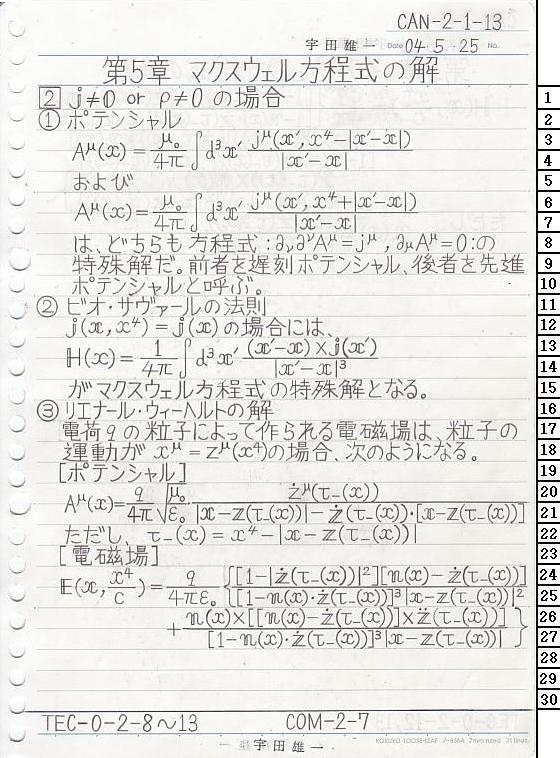 CAN-2-1-13
宇田雄一 Date 04 5 25 No.
第5章 マクスウェル方程式の解
2 j≠0 or ρ≠0 の場合
① ポテンシャル
A^μ(x)=μ₀/4π ∫d³x′ j^μ(x′,x⁴−|x′−x|)/|x′−x|
および
A^μ(x)=μ₀/4π ∫d³x′ j^μ(x′,x⁴+|x′−x|)/|x′−x|
は、どちらも方程式:∂_ν∂^νA^μ=j^μ,∂_μA^μ=0:の
特殊解だ。前者を遅刻ポテンシャル、後者を先進
ポテンシャルと呼ぶ。
② ビオ・サヴァールの法則
j(x,x⁴)=j(x)の場合には、
H(x)=1/4π ∫d³x′ (x′−x)×j(x′)/|x′−x|³
がマクスウェル方程式の特殊解となる。
③ リエナール・ウィーヘルトの解
電荷qの粒子によって作られる電磁場は、粒子の
運動が x^μ=z^μ(x⁴)の場合、次のようになる。
[ポテンシャル]
A^μ(x)=q/4π √(μ₀/ε₀) ż^μ(τ₋(x))/(|x−z(τ₋(x))|−ż(τ₋(x))·[x−z(τ₋(x))])
ただし、τ₋(x)=x⁴−|x−z(τ₋(x))|
[電磁場]
E(x,x⁴/c)=q/4πε₀ {[1−|ż(τ₋(x))|²][n(x)−ż(τ₋(x))]/([1−n(x)·ż(τ₋(x))]³|x−z(τ₋(x))|²)
+n(x)×[[n(x)−ż(τ₋(x))]×z̈(τ₋(x))]/([1−n(x)·ż(τ₋(x))]³|x−z(τ₋(x))|)}
TEC-0-2-8〜13 COM-2-7
宇田雄一
KOKUYO LOOSE-LEAF ノ-836A 7mm ruled 31 lines
1
2
3
4
5
6
7
8
9
10
11
12
13
14
15
16
17
18
19
20
21
22
23
24
25
26
27
28
29
30